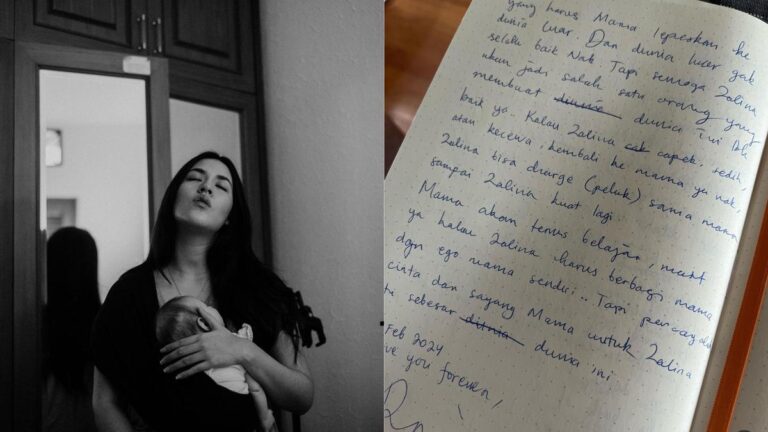 yang harus Mama lepaskan ke
dunia luar. Dan dunia luar gak
selalu baik Nak. Tapi semoga Zalina
akan jadi salah satu orang yang
membuat dunia dunia ini lbh
baik ya. Kalau Zalina capek, sedih,
atau kecewa, kembali ke mama ya nak,
Zalina bisa charge (peluk) sama mama
sampai Zalina kuat lagi.
Mama akan terus belajar, maaf
ya kalau Zalina harus berbagi mama
dgn ego mama sendiri.. Tapi percayalah
cinta dan sayang Mama untuk Zalina
sebesar dunia dunia ini
Feb 2024
love you forever,